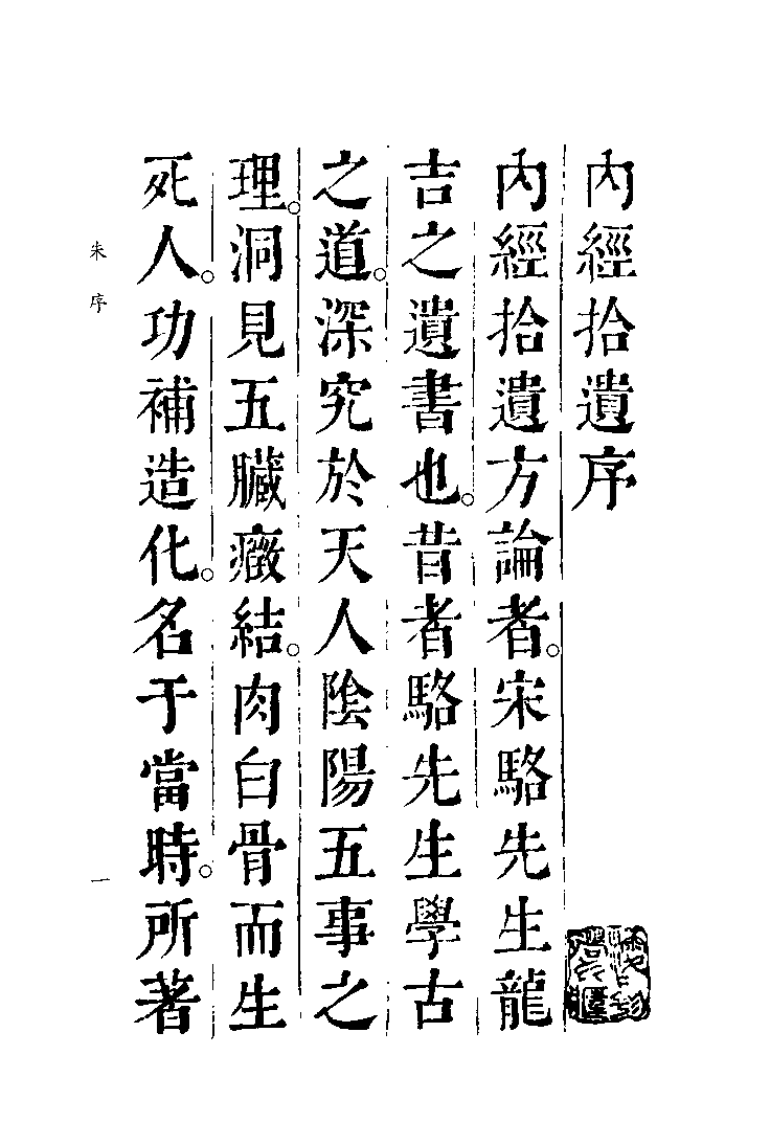 內經拾遺序
內經拾遺方論者。宋駱先生龍
吉之遺書也。昔者駱先生學古
之道。深究於天人陰陽五事之
理。洞見五臟癥結。肉白骨而生
死人。功補造化。名于當時。所著
朱序
一